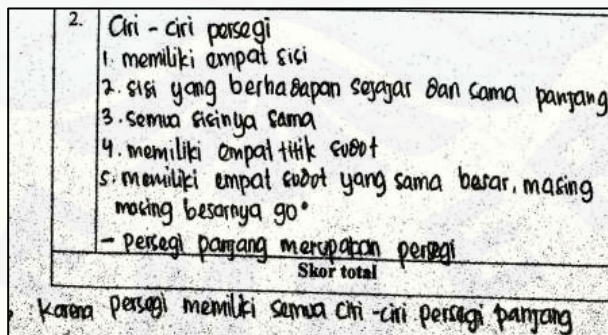 2. Ciri - ciri persegi
1. memiliki empat sisi
2. sisi yang berhadapan sejajar dan sama panjang
3. semua sisinya sama
4. memiliki empat titik sudut
5. memiliki empat sudut yang sama besar, masing
masing besarnya 90°
- persegi panjang merupakan persegi
Skor total
karena persegi memiliki semua ciri - ciri persegi panjang